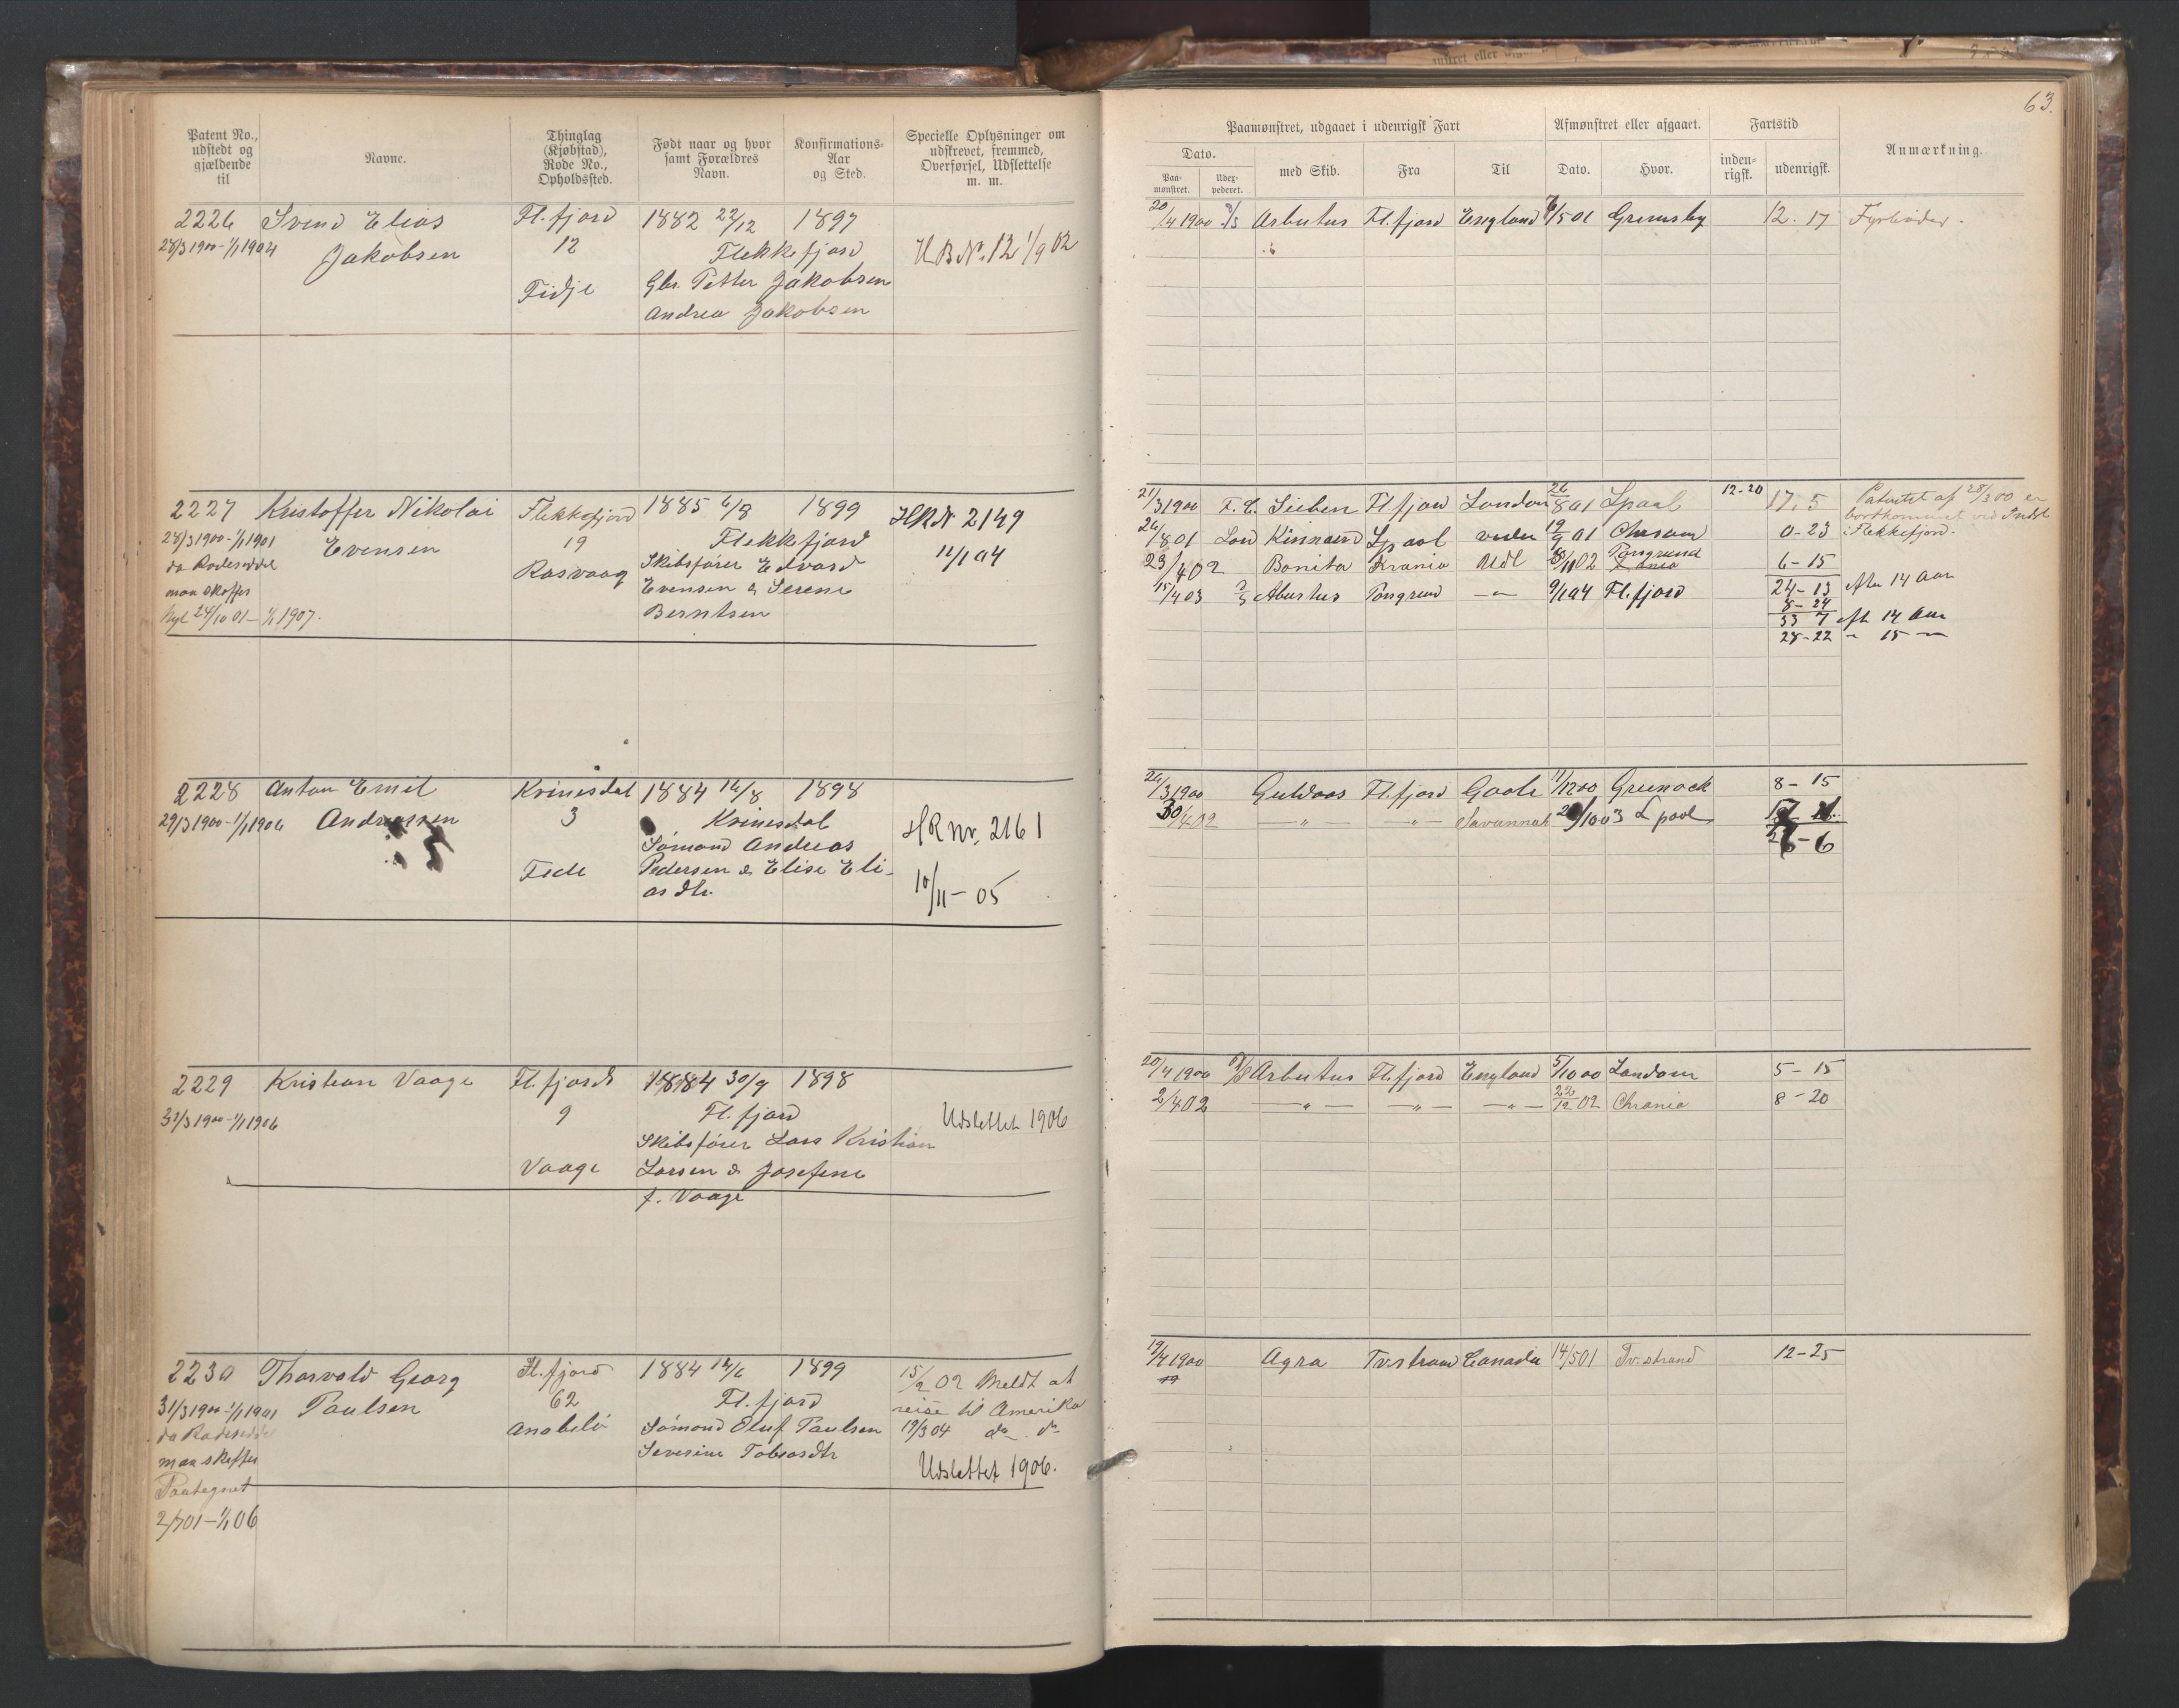 63.
Patent No., udstedt og gjældende til
Navne.
Thinglag (Kjøbstad), Rode No., Opholdssted.
Født naar og hvor samt Forældres Navn.
Konfirmations-Aar og Sted.
Specielle Oplysninger om udskrevet, fremmed, Overførsel, Udslettelse m. m.
Paamønstret, udgaaet i udenrigsk Fart
Dato.
Paa-mønstret.
Udex-pederet.
med Skib.
Fra
Til
Afmønstret eller afgaaet.
Dato.
Hvor.
Fartstid
inden-rigsk.
udenrigsk.
Anmærkning.
2226 Svend Elias Fl.fjord 1882 22/12 1897
28/3 1900 - 1/1 1904 Jakobsen 12 Flekkefjord H B No. 12 1/9 02
Fidje Gbr. Petter Jakobsen
Andrea Jakobsen
20/4 1900 Arbutus Fl.fjord England /5 01 Grimsby 12. 17 Fyrbøder.
2227 Kristoffer Nikolai Flekkefjord 1885 6/8 1899 HR N 2149
28/3 1900 - 1/1 1901 Evensen 19 Flekkefjord 12/1 04
da Rodeseddel Rasvaag Skibsfører Edvard
maa skaffes Evensen & Serene
Nyt 24/10 01 - 1/1 1907. Berntsen
21/3 1900 F. E. Sieben Fl.fjord London 26/8 01 Lpool 12-20 17. 5 Patentet af 28/3 00 er
bortkommet ved Indl
i Flekkefjord.
26/8 01 Lord Kinnaird Lpool 19/9 01 0-23
23/4 02 Bonita Krania Udl /11 02 Porsgrund 6-15
15/4 03 Abustus Porsgrund — " — 9/1 04 Fl.fjord 24-13 efter 14 Aar
8-24
33 7 eft 14 Aar
28-22 " 15 —
2228 Anton Emil Kvinesdal 1884 16/8 1898
29/3 1900 - 1/1 1906 Andreassen 3 Kvinesdal HR Nr. 2161
Sømand Andreas
Fede Pedersen & Elise Eli-
asdtr. 10/11 - 05
26/3 1900 Guldaas Fl.fjord Goole 11/12 00 Greenock 8 - 15
30/4 02 — " — — " — Savannah /10 03 Lpool
- 6
2229 Kristian Vaage Fl.fjords 1884 30/9 1898
31/3 1900 - 1/1 1906 9 Fl.fjord Udslettet 1906
Skibsfører Lars Kristian
Vaage Larsen & Josefine
f. Vaage
20/4 1900 Arbutus Fl.fjord England 5/10 00 London 5 - 15
2/4 02 — " — — " — — " — 22/12 02 Chrania 8 - 20
2230 Thorvald Georg Fl.fjord 1884 12/6 1899 15/2 02 Meldt at
31/3 1900 - 1/1 1901 Paulsen 62 Fl.fjord reise til Amerika
da Rodeseddel Anabelø Sømand Oluf Paulsen 19/3 04 do. do
maa skaffes Severine Tobiasdtr
Udslettet 1906.
Paategnet
2/7 01 - 1/1 06
19/4 1900 Agra Tv.strand Canada 14/5 01 Tv.strand 12-25